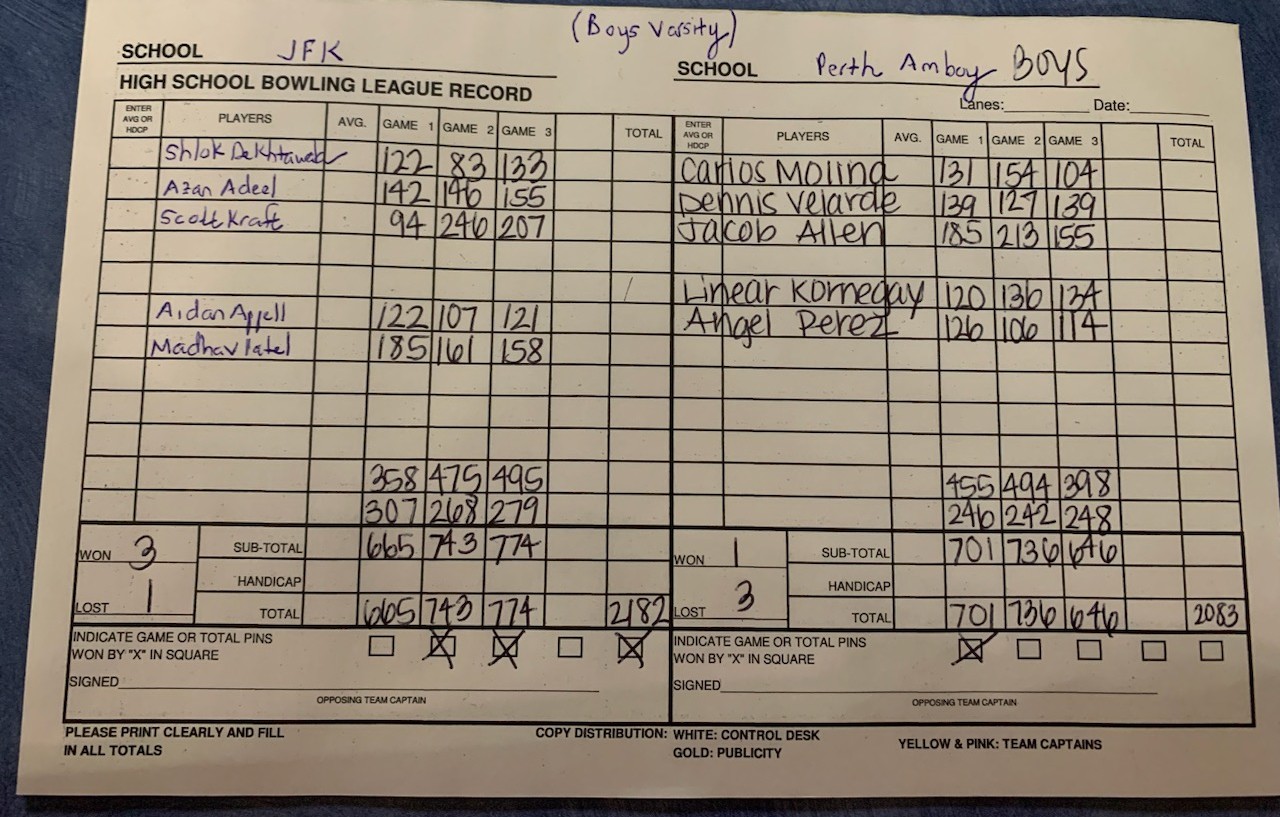 (Boys Varsity)
SCHOOL JFK
SCHOOL Perth Amboy BOYS
HIGH SCHOOL BOWLING LEAGUE RECORD
Lanes: Date:
ENTER AVG OR HDCP PLAYERS AVG. GAME 1 GAME 2 GAME 3 TOTAL
Shlok Dekhtawala 122 83 133
Azan Adeel 142 146 155
Scott Kraft 94 246 207
Aidan Appell 122 107 121
Madhav Patel 185 161 158
358 475 495
307 268 279
WON 3 SUB-TOTAL 665 743 774
HANDICAP
LOST 1 TOTAL 665 743 774 2182
INDICATE GAME OR TOTAL PINS
WON BY "X" IN SQUARE
SIGNED
OPPOSING TEAM CAPTAIN
ENTER AVG OR HDCP PLAYERS AVG. GAME 1 GAME 2 GAME 3 TOTAL
Carlos Molina 131 154 104
Dennis Velarde 139 127 139
Jacob Allen 185 213 155
Linear Kornegay 120 136 134
Angel Perez 126 106 114
455 494 398
246 242 248
WON 1 SUB-TOTAL 701 736 646
HANDICAP
LOST 3 TOTAL 701 736 646 2083
INDICATE GAME OR TOTAL PINS
WON BY "X" IN SQUARE
SIGNED
OPPOSING TEAM CAPTAIN
PLEASE PRINT CLEARLY AND FILL
IN ALL TOTALS
COPY DISTRIBUTION: WHITE: CONTROL DESK
GOLD: PUBLICITY
YELLOW & PINK: TEAM CAPTAINS